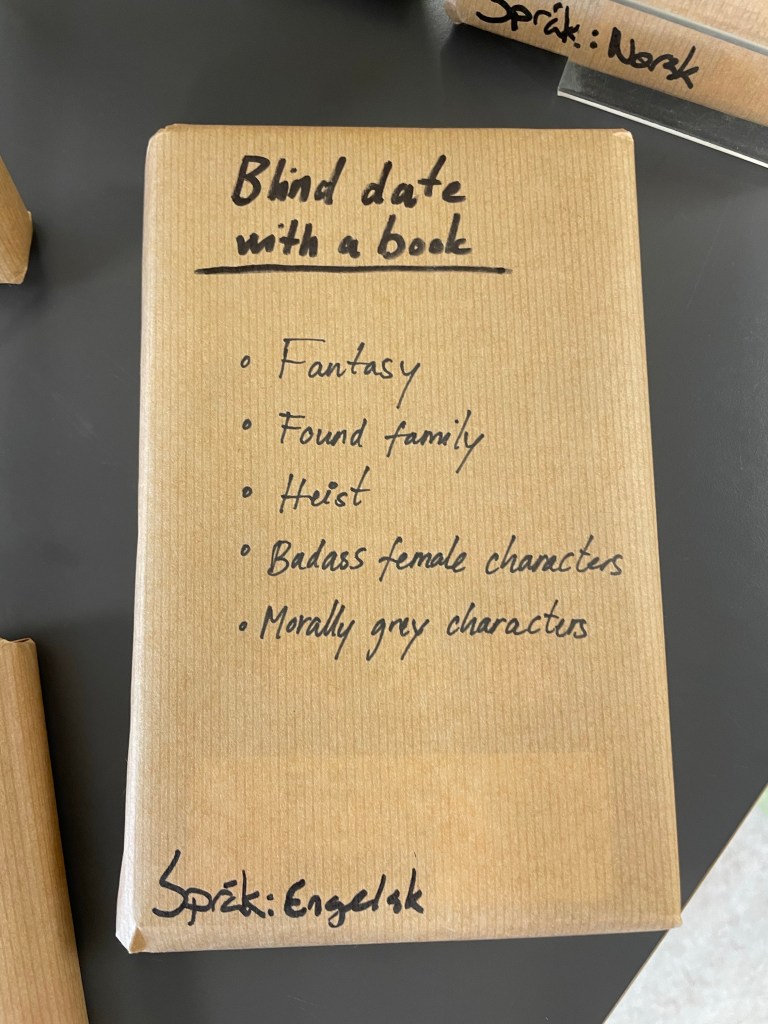 Språk: Norsk
Blind date
with a book
• Fantasy
• Found family
• Heist
• Badass female characters
• Morally grey characters
Språk: Engelsk